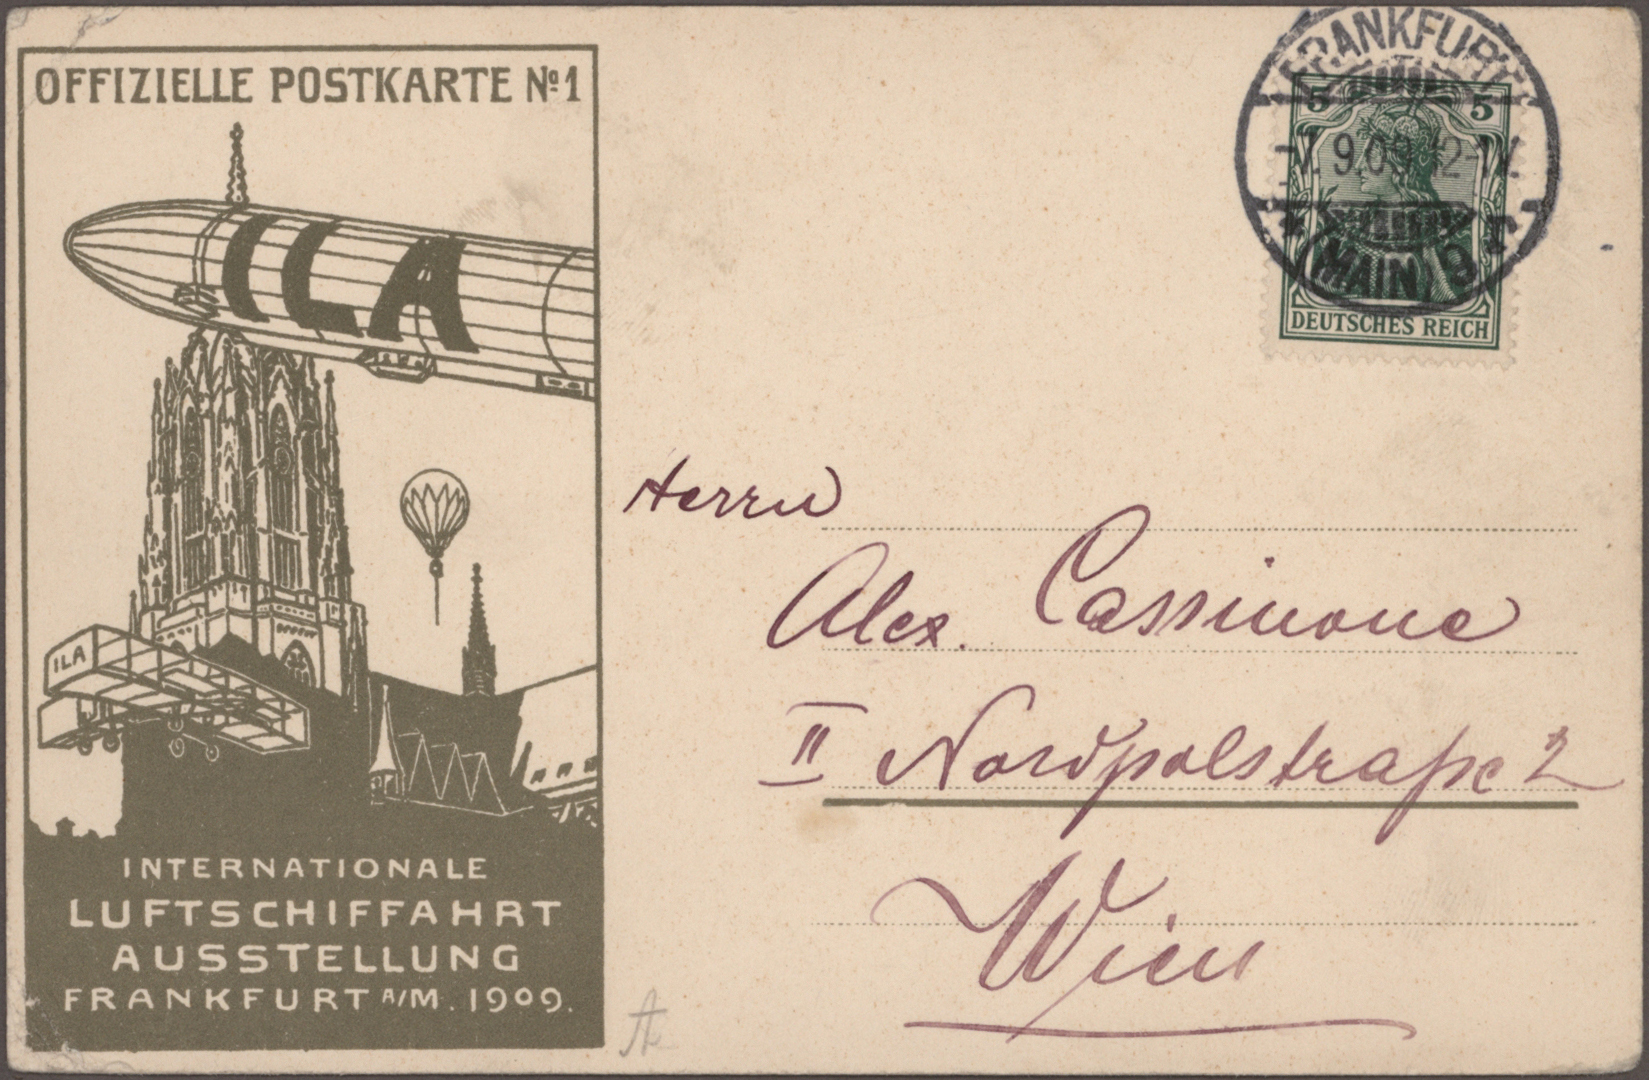 OFFIZIELLE POSTKARTE No. 1
ILA
ILA
INTERNATIONALE
LUFTSCHIFFAHRT
AUSSTELLUNG
FRANKFURT A/M. 1909.
FRANKFURT
-7.9.09.12-1V.
MAIN 9
5 5
DEUTSCHES REICH
Herrn
Alex. Cassinone
II Nordpolstraße 2
Wien